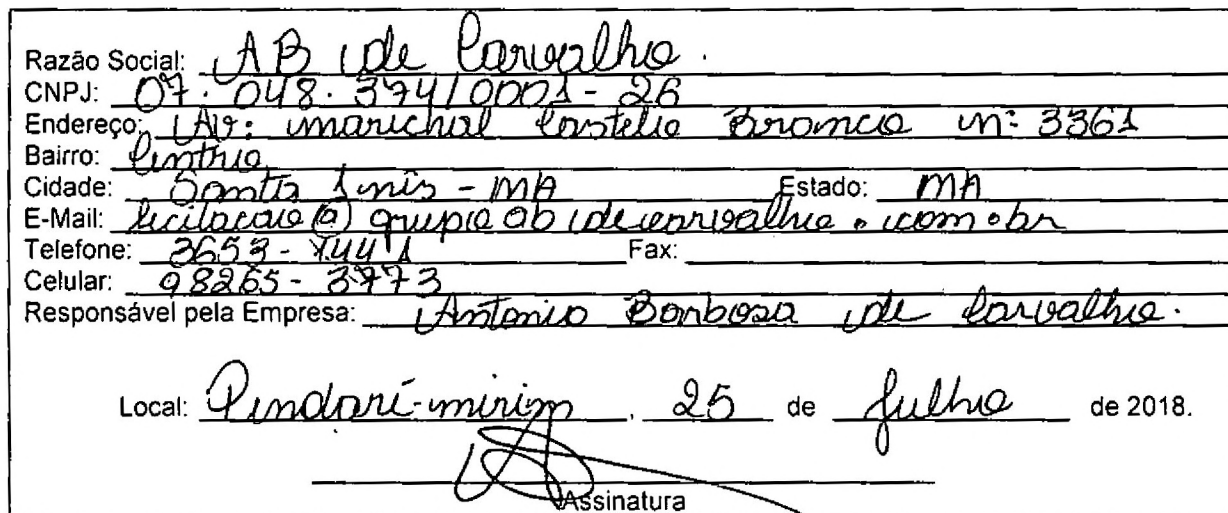 Razão Social: AB de Carvalho.
CNPJ: 07.048.374/0001-26
Endereço: Av: marichal Castelo Branco nº 3361
Bairro: Centro
Cidade: Santa Inês - MA Estado: MA
E-Mail: licitacao@grupoabdecarvalho.com.br
Telefone: 3653-7441 Fax:
Celular: 98265-3773
Responsável pela Empresa: Antonio Barbosa de Carvalho.
Local: Pindaré-mirim, 25 de Julho de 2018.
Assinatura